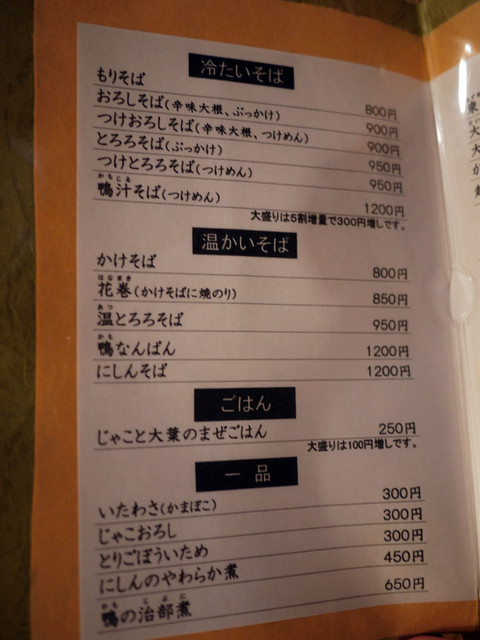 冷たいそば
もりそば 800円
おろしそば(辛味大根、ぶっかけ) 900円
つけおろしそば(辛味大根、つけめん) 900円
とろろそば(ぶっかけ) 950円
つけとろろそば(つけめん) 950円
鴨汁そば(つけめん) 1200円
大盛りは5割増量で300円増しです。
温かいそば
かけそば 800円
花巻(かけそばに焼のり) 850円
温とろろそば 950円
鴨なんばん 1200円
にしんそば 1200円
ごはん
じゃこと大葉のまぜごはん 250円
大盛りは100円増しです。
一品
いたわさ(かまぼこ) 300円
じゃこおろし 300円
とりごぼういため 300円
にしんのやわらか煮 450円
鴨の治部煮 650円